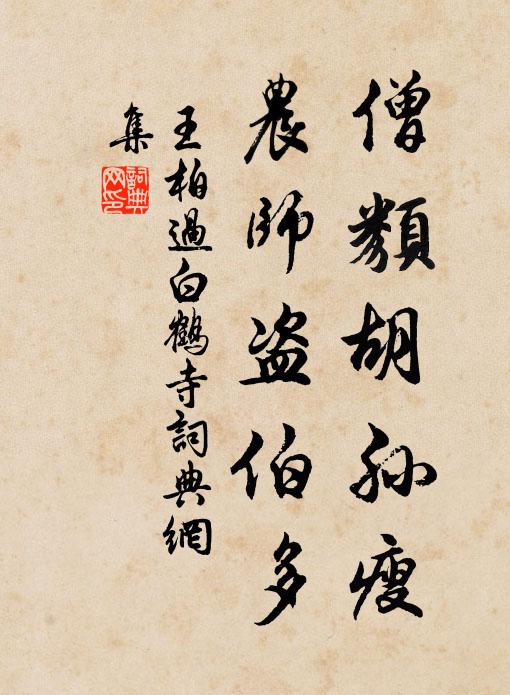 僧類胡孫瘦
農師盗伯多
王柏過白鶴寺詞典網
集
詞典
网印